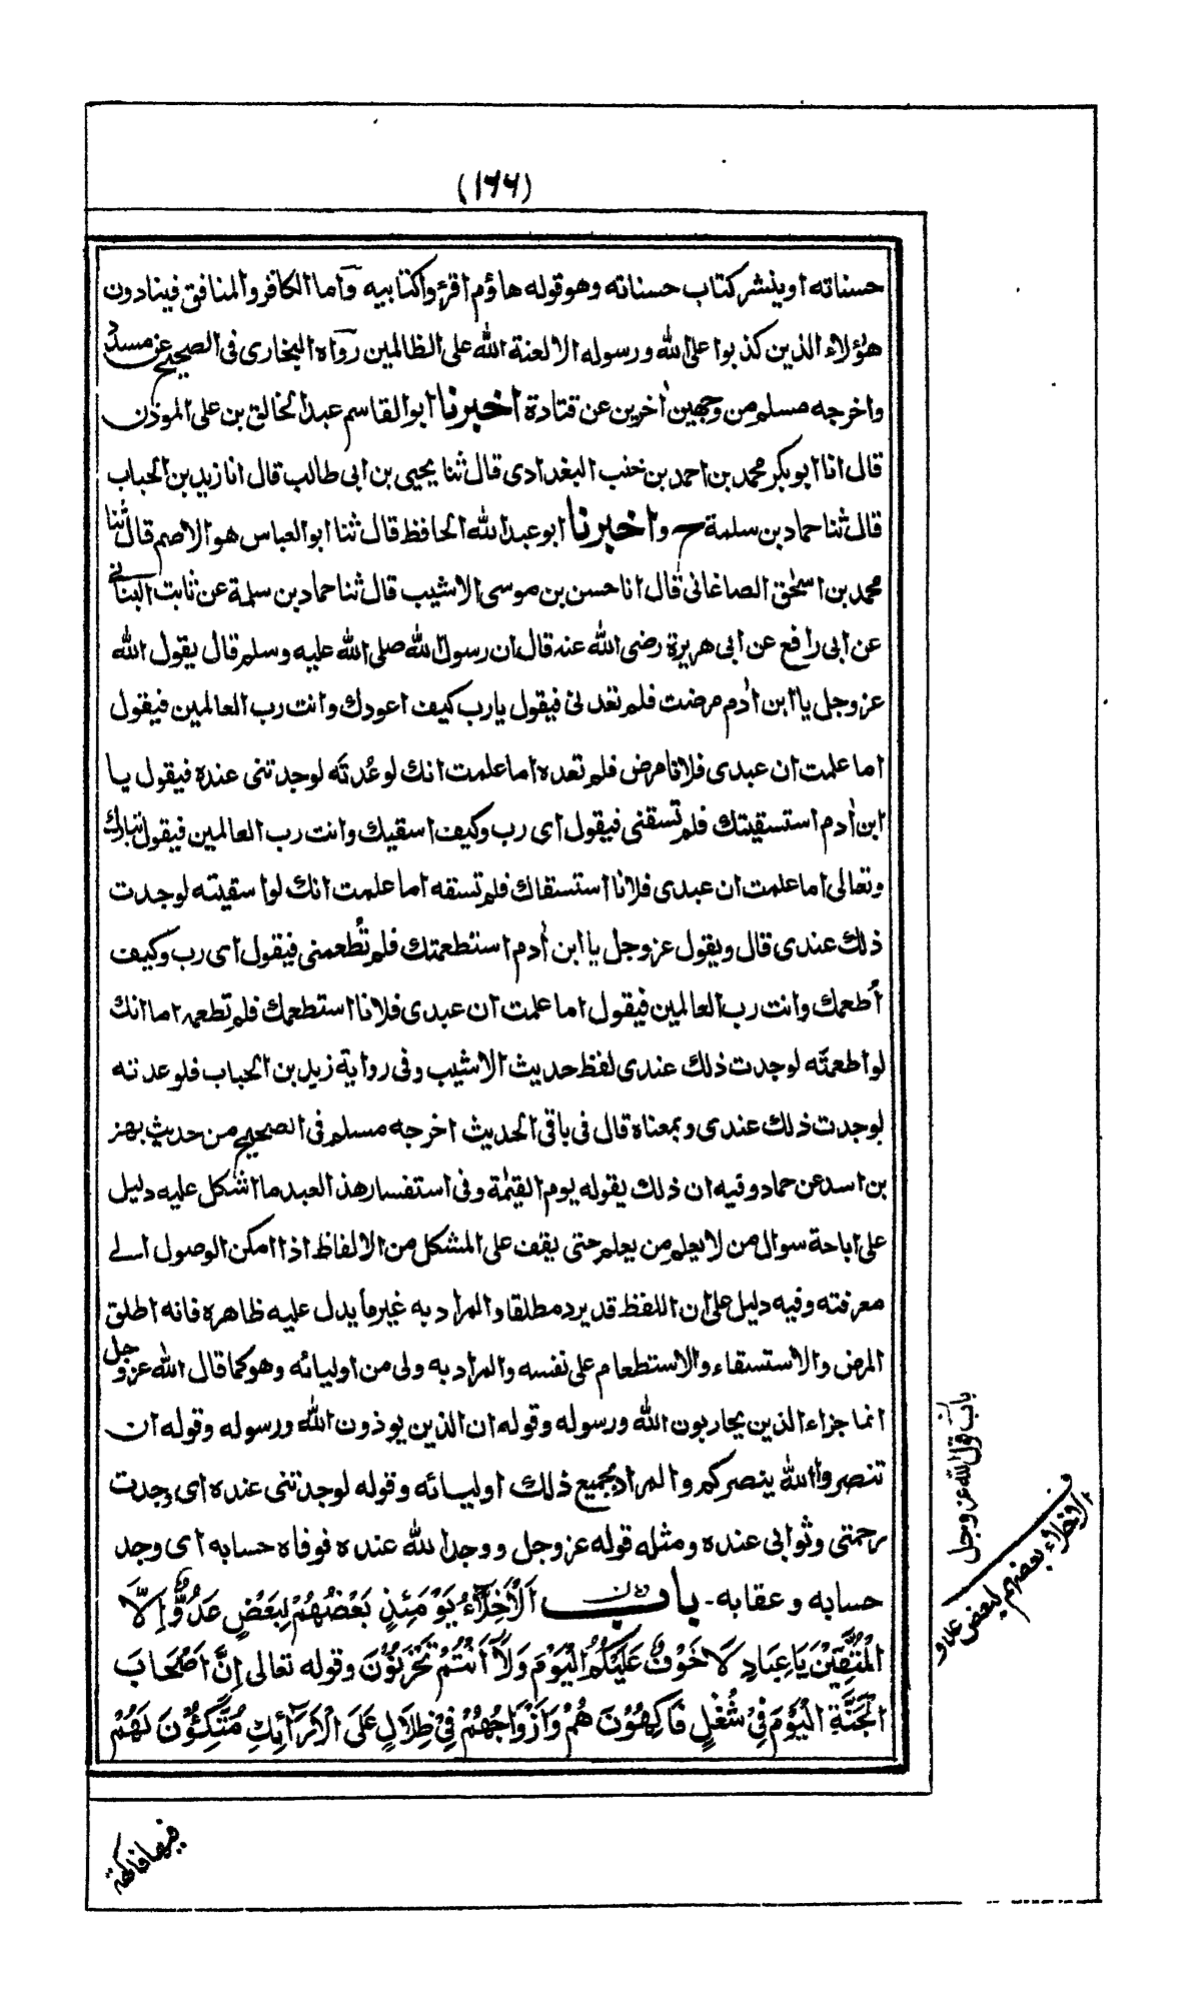 (١٦٦)
حسناته او ينشر كتاب حسناته وهو قوله هاؤم اقرؤا كتابيه واما الكافر والمنافق فينادون
هؤلاء الذين كذبوا على الله ورسوله الا لعنة الله على الظالمين رواه البخارى فى الصحيح عن مسدد
واخرجه مسلم من وجهين اٰخرين عن قتادة اخبرنا ابو القاسم عبد الخالق بن على الموذن
قال انا ابو بكر محمد بن احمد بن خنب البغدادى قال ثنا يحيى بن ابى طالب قال انا زيد بن الحباب
قال ثنا حماد بن سلمة ح واخبرنا ابو عبد الله الحافظ قال ثنا ابو العباس هو الاصم قال ثنا
محمد بن اسحٰق الصاغانى قال انا حسن بن موسى الاشيب قال ثنا حماد بن سلمة عن ثابت البنانى
عن ابى رافع عن ابى هريرة رضى الله عنه قال ان رسول الله صلى الله عليه وسلم قال يقول الله
عز وجل يا ابن اٰدم مرضت فلم تعدنى فيقول يا رب كيف اعودك وانت رب العالمين فيقول
اما علمت ان عبدى فلانا مرض فلم تعده اما علمت انك لو عُدتَه لوجدتنى عنده فيقول يا
ابن اٰدم استسقيتك فلم تسقنى فيقول اى رب وكيف اسقيك وانت رب العالمين فيقول تبارك
وتعالى اما علمت ان عبدى فلانا استسقاك فلم تسقه اما علمت انك لو اسقيته لوجدت
ذلك عندى قال ويقول عز وجل يا ابن اٰدم استطعمتك فلم تُطعمنى فيقول اى رب وكيف
أطعمك وانت رب العالمين فيقول اما علمت ان عبدى فلانا استطعمك فلم تطعمه اما انك
لو اطعمته لوجدت ذلك عندى لفظ حديث الاشيب وفى رواية زيد بن الحباب فلو عدته
لوجدت ذلك عندى وبمعناه قال فى باقى الحديث اخرجه مسلم فى الصحيح من حديث بهز
بن اسد عن حماد وفيه ان ذلك يقوله يوم القيٰمة وفى استفسار هذا العبد ما اشكل عليه دليل
على اباحة سوال من لا يعلم من يعلم حتى يقف على المشكل من الالفاظ اذا امكن الوصول الى
معرفته وفيه دليل على ان اللفظ قد يرد مطلقا والمراد به غير ما يدل عليه ظاهره فانه اطلق
المرض والاستسقاء والاستطعام على نفسه والمراد به ولى من اوليائه وهو كما قال الله عز وجل
انما جزاء الذين يحاربون الله ورسوله وقوله ان الذين يوذون الله ورسوله وقوله ان
تنصروا الله ينصركم والمراد بجميع ذلك اوليائه وقوله لوجدتنى عنده اى وجدت
رحمتى وثوابى عنده ومثله قوله عز وجل ووجد الله عنده فوفاه حسابه اى وجد
حسابه وعقابه - باب اَلْاَخِلَّآءُ يَوْمَئِذٍ بَعْضُهُمْ لِبَعْضٍ عَدُوٌّ اِلَّا
الْمُتَّقِيْنَ يَا عِبَادِ لَا خَوْفٌ عَلَيْكُمُ الْيَوْمَ وَلَا اَنْتُمْ تَحْزَنُوْنَ وقوله تعالى اِنَّ اَصْحَابَ
الْجَنَّةِ الْيَوْمَ فِيْ شُغُلٍ فَاكِهُوْنَ هُمْ وَاَزْوَاجُهُمْ فِيْ ظِلَالٍ عَلَى الْاَرَآئِكِ مُتَّكِئُوْنَ لَهُمْ
باب قول الله عز وجل
الاخلاء بعضهم لبعض عدو
فيها فاكهة